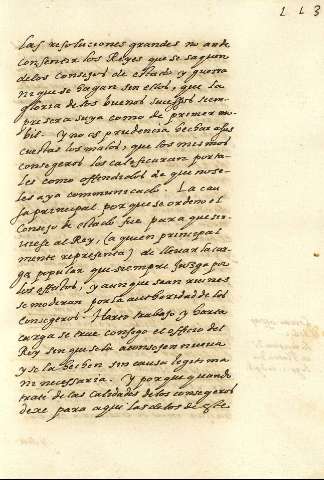 113
las resoluciones grandes no ande
consentir los Reyes que se saquen
delos Consejos de estado y guerra
ni que se hagan sin ellos, que la
gloria de los buenos sucessos siem-
pre sera suya como de primer mo-
bil. Y no es prudencia hechar a sus
cuestas los malos, que los mismos
consegeros los calificaran por ta-
les como offendidos de que no se
les aya communicado. La cau
sa principal por que se ordeno el
Consejo de estado fue para que sir-
viesse al Rey, (a quien principal
mente representa) de llevar la car-
ga popular que siempre juzga por
los effectos, y aunque sean ruines
se moderan por la authoridad de los
consegeros. Harto trabajo y harta
carga se trae consigo el officio del
Rey sin que se la aconsejen nueva
y se la hechen sin causa legitima
ni necessaria. Y porque quando
trate de las calidades de los consegeros
dexe para aqui las de los de